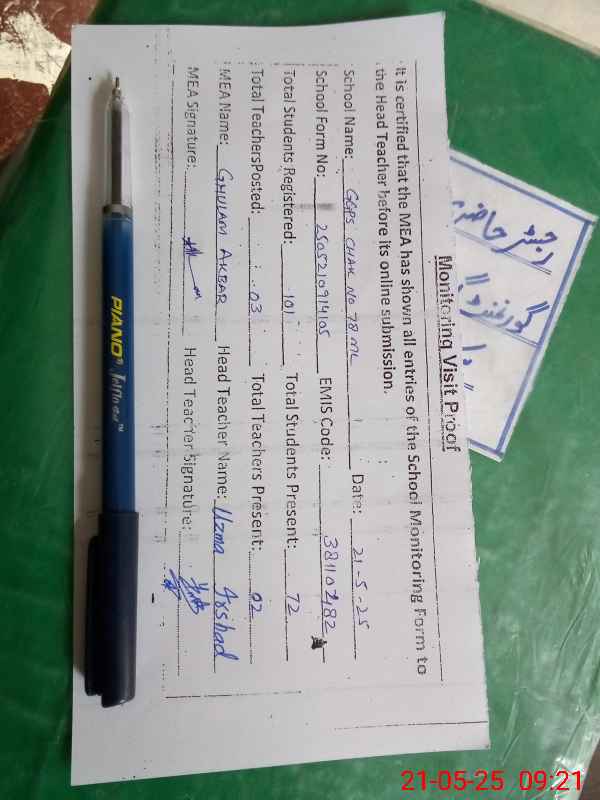 Monitoring Visit Proof
It is certified that the MEA has shown all entries of the School Monitoring Form to
the Head Teacher before its online submission.
School Name: GGPS CHAK No 78 ML Date: 21-5-25
School Form No: 2505210914105 EMIS Code: 38110482
Total Students Registered: 101 Total Students Present: 72
Total TeachersPosted: 03 Total Teachers Present: 02
MEA Name: GHULAM AKBAR Head Teacher Name: Uzma Arshad
MEA Signature: Head Teacher Signature:
PIANO
رجسٹر حاضری
گورنمنٹ
21-05-25 09:21